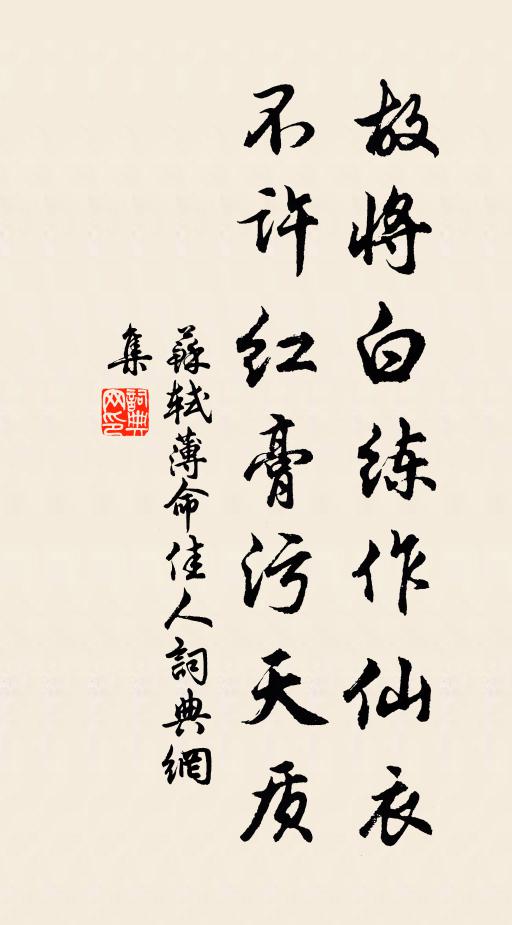 故将白练作仙衣
不许红膏污天质
蘇軾薄命佳人詞典網
集
詞典
网印